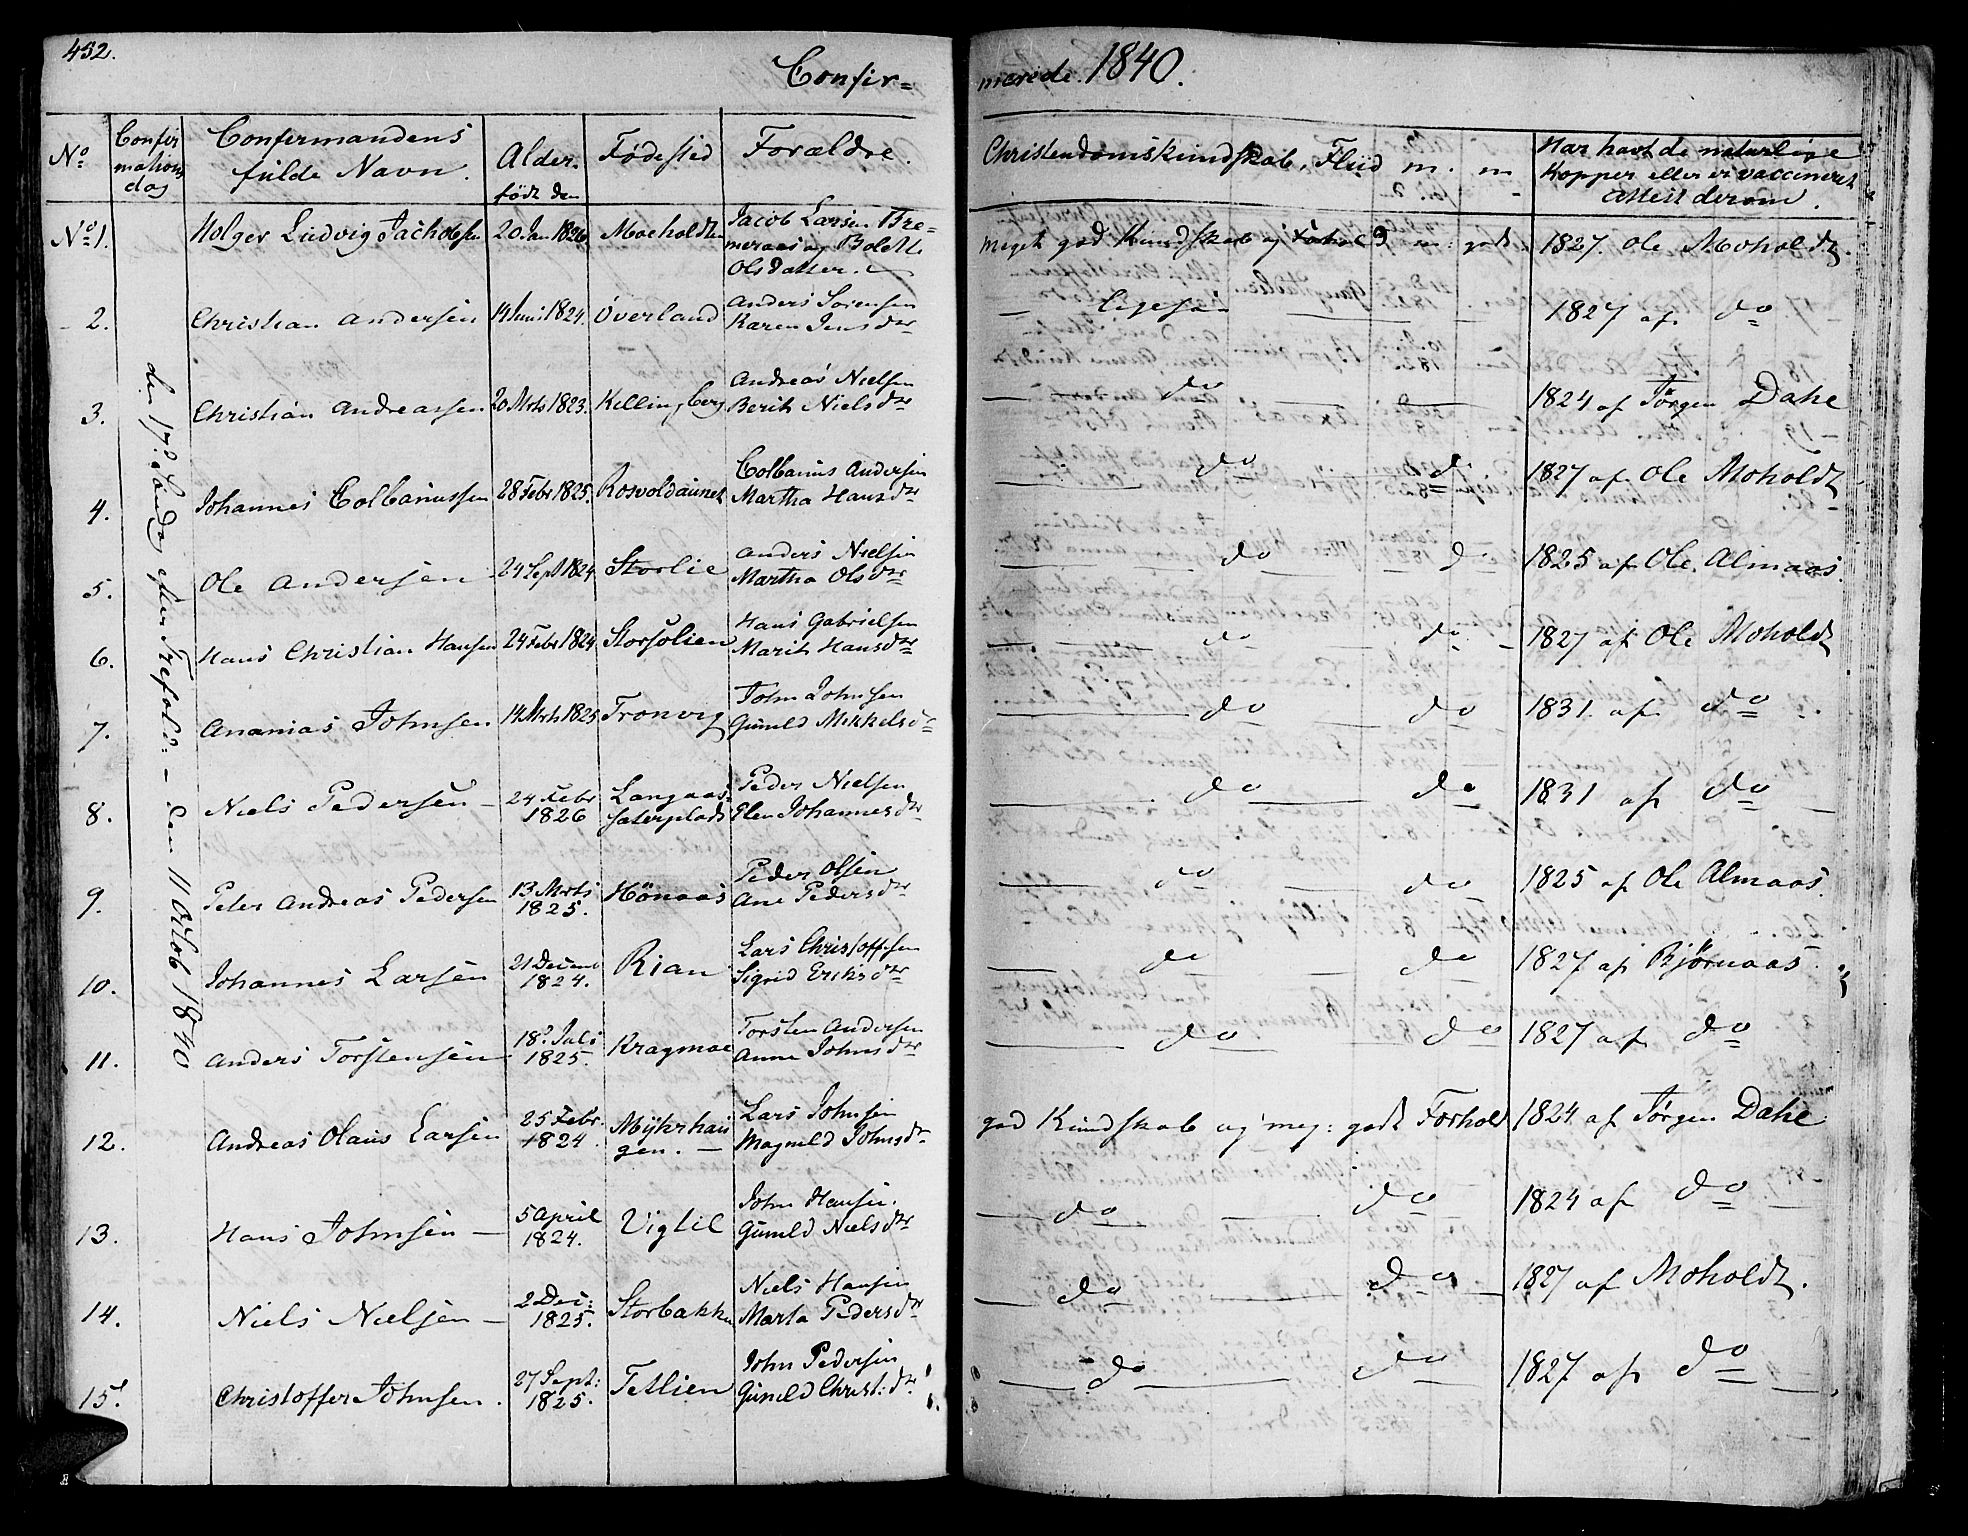 452.
Confir=
merede. 1840.
No
Confir
mations
dag
Confirmandens
fulde Navn.
Alder.
født den
Fødested
Forældre.
Christendomskundskab, Fliid m. m
Har havt de naturlige
Kopper eller er vaccineret
Attest derom.
den 17de Søndag efter Trefold: – den 11 Octob 1840
No 1. Holger Ludvig Jachobsen 20 Jan 1826 Moeholdten Jacob Larsen Bre=
meraas og Bolette
Olsdatter.
meget god Kundskab og Forhold m: godt 1827. Ole Moholdt.
2. Christian Andersen 14 Juni 1824. Överland Anders Sørensen
Karen Jensdtr
ligesaa 1827 af do
3. Christian Andreassen 20 Mrts 1823. Killingberg Andreas Nielsen
Berit Nielsdtr
do 1824 af Jørgen Dahl
4. Johannes Colbanussen 28 Febr 1825. Rosvoldaunet Colbanus Andersen
Martha Hansdtr
do d 1827 af Ole Moholdt
5. Ole Andersen 24 Sept 1824 Storlie Anders Nielsen
Martha Olsdtr
do d 1825 af Ole Almaas.
6. Hans Christian Hansen 24 Febr 1824 Storsolien Hans Gabrielsen
Marit Hansdtr
do do 1827 af Ole Moholdt
7. Ananias Johnsen 14 Mrts 1825 Tronvig John Johnsen
Gunild Mikkelsd
do do 1831. af do
8. Niels Pedersen – 24 Febr
1826 Langaas
saterplads Peder Nielsen
Elen Johannesdtr
do do 1831 af do
9. Peter Andreas Pedersen 13 Mrts
1825. Hönaas Peder Olsen
Ane Pedersdtr
do do 1825 af Ole Almaas.
10. Johannes Larsen 21 Decemb
1824. Rian Lars Christoffsen
Sigrid Eriksdtr
do do 1827 af Bjørnaas.
11. Anders Torstensen 18de Juli
1825. Kragmoe Torsten Andersen
Anne Johnsdtr
do do 1827 af do
12. Andreas Olaus Larsen 25 Febr
1824. Myhrhau
gen. – Lars Johnsen
Magnild Johnsdtr
god Kundskab og meg: godt Forhold 1824 af Jørgen Dahl
13. Hans Johnsen – 5 April
1824. Viglil John Hansen.
Gunild Nielsdtr
do do 1824 af do
14. Niels Nielsen – 2 Dec:
1825. Storbakken Niels Hansen
Marta Pedersdtr
do do 1827 af Moholdt.
15. Christoffer Johnsen. 27 Sept:
1825. Tetlien John Pedersen
Gunild Christ: dtr.
do do 1827 af do